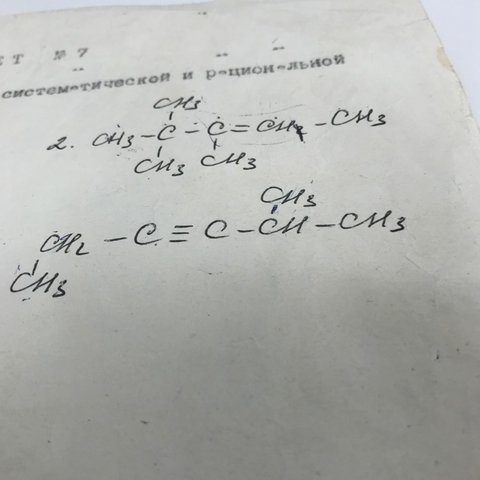 ЕТ №7
систематической и рациональной
CH3
2. CH3 - C - C = CH - CH3
CH3 CH3
CH3
CH2 - C ≡ C - CH - CH3
CH3